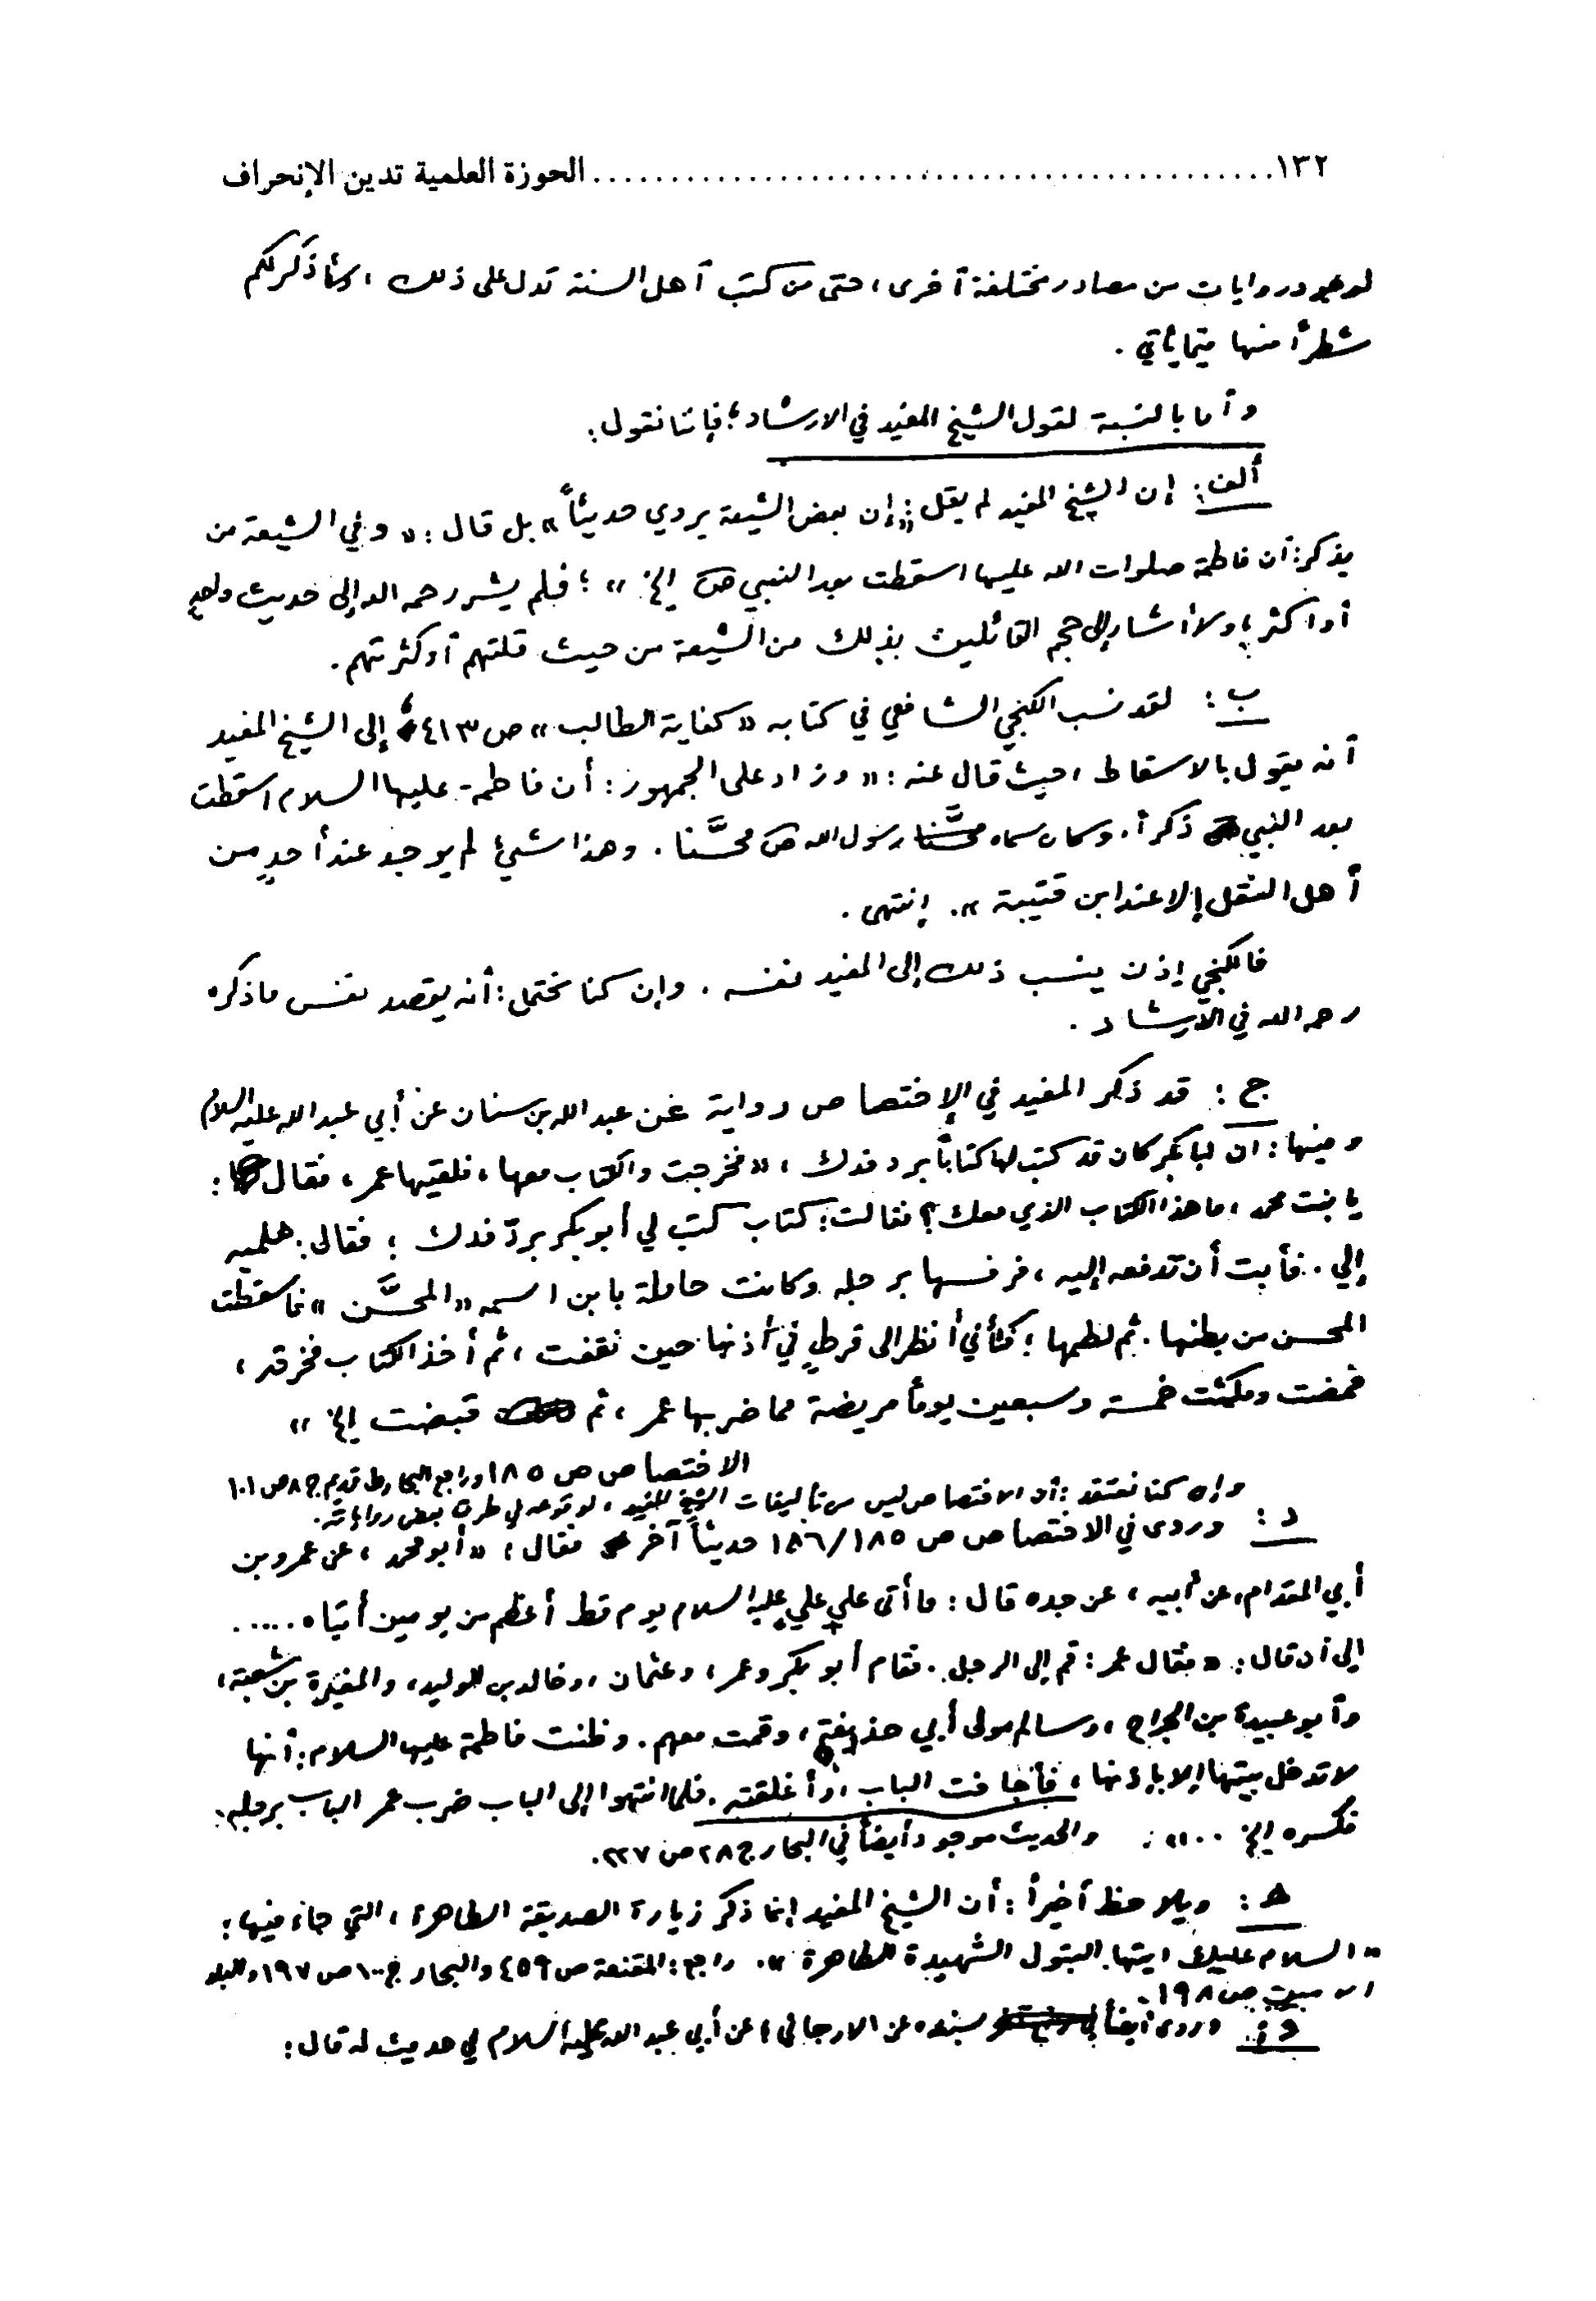 ١٣٢ ........................................ الحوزة العلمية تدين الإنحراف
لوجود روايات من مصادر مختلفة أخرى، حتى من كتب أهل السنة تدل على ذلك، وسأذكر لكم
شطراً منها فيما يأتي.
وأما بالنسبة لقول الشيخ المفيد في الارشاد؛ فإننا نقول:
ألف: إن الشيخ المفيد لم يقل: «إن بعض الشيعة يروي حديثاً» بل قال: «وفي الشيعة من
يذكر: أن فاطمة صلوات الله عليها اسقطت بعد النبي ص إلخ»؛ فلم يشر رحمه الله إلى حديث واحد
أو اكثر، ولا أشار إلى حجم القائلين بذلك من الشيعة من حيث قلتهم أو كثرتهم.
ب: لقد نسب الكنجي الشافعي في كتابه «كفاية الطالب» ص ٤١٣ إلى الشيخ المفيد
أنه يقول بالاسقاط، حيث قال عنه: «وزاد على الجمهور: أن فاطمة عليها السلام اسقطت
بعد النبي ذكراً. وكان سماه رسول الله ص محسَّنا. وهذا شيء لم يوجد عند أحدٍ من
أهل النقل إلا عند ابن قتيبة». إنتهى.
فالكنجي إذن ينسب ذلك إلى المفيد نفسه. وإن كنا نحتمل: أنه يقصد نفس ما ذكره
رحمه الله في الارشاد.
ج: قد ذكر المفيد في الإختصاص رواية عن عبد الله بن سنان عن أبي عبد الله عليه السلام
وفيها: ان ابا بكر كان قد كتب لها كتاباً برد فدك، «فخرجت والكتاب معها، فلقيها عمر، فقال:
يا بنت محمد، ما هذا الكتاب الذي معك؟ فقالت: كتاب كتب لي أبو بكر بردّ فدك؛ فقال: هلميه
إلي. فأبت أن تدفعه إليه، فرفسها برجله وكانت حاملة بابن اسمه «المحسَّن» فاسقطت
المحسن من بطنها. ثم لطمها؛ كأني أنظر الى قرطٍ في أذنها حين نقفت، ثم أخذ الكتاب فخرقه،
فمضت ومكثت خمسة وسبعين يوماً مريضة مما ضربها عمر، ثم قبضت إلخ»
الاختصاص ص ١٨٥ وراجع البحار ط قديم ج ٨ ص ١٠١
وإن كنا نعتقد: أن الاختصاص ليس من تأليفات الشيخ المفيد، لوقوعه في طرق بعض رواياته.
د: وروى في الاختصاص ص ١٨٥/١٨٦ حديثاً آخر فقال: «أبو محمد، عن عمرو بن
أبي المقدام، عن أبيه، عن جده قال: ما أتى على علي عليه السلام يوم قط أعظم من يومين أتياه.....
إلى أن قال: «فقال عمر: قم إلى الرجل. فقام أبو بكر وعمر، وعثمان، وخالد بن الوليد، والمغيرة بن شعبة،
وأبو عبيدة بن الجراح، وسالم مولى أبي حذيفة، وقمت معهم. وظنت فاطمة عليها السلام: أنها
لا تدخل بيتها إلا بإذنها، فأجافت الباب، وأغلقته. فلما انتهوا إلى الباب ضرب عمر الباب برجله،
فكسره إلخ ..». والحديث موجود أيضاً في البحار ج ٢٨ ص ٢٢٧.
هـ: ويلاحظ أخيراً: أن الشيخ المفيد إنما ذكر زيارة الصديقة الطاهرة، التي جاء فيها:
«السلام عليك ايتها البتول الشهيدة الطاهرة». راجع: المقنعة ص ٤٥٩ والبحار ج ١٠٠ ص ١٩٧ والبلد
الامين ص ١٩٨.
و: وروى أيضاً بسنده عن الارجاني، عن أبي عبد الله عليه السلام في حديث له قال: